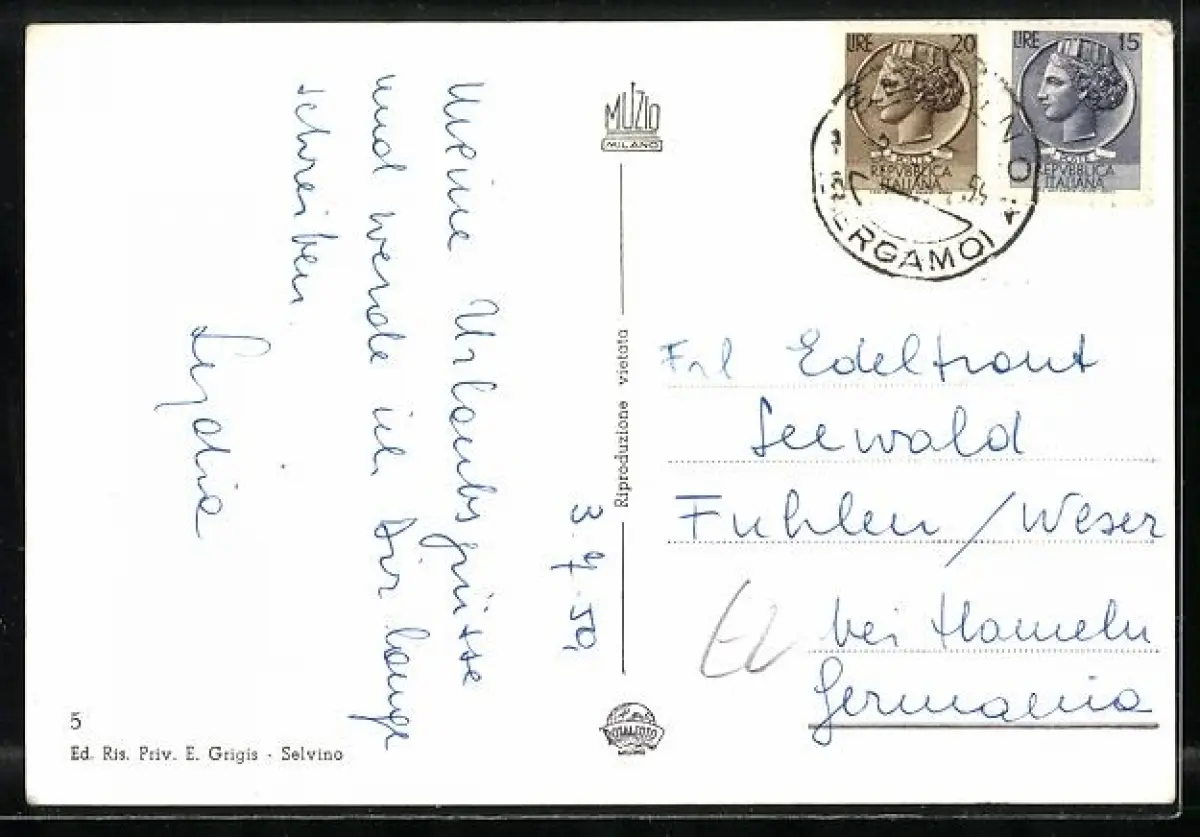 Meine Urlaubsgrüsse
und werde ich Dir lange
schreiben.
Lydia
3.9.59.
MUZIO
MILANO
Riproduzione vietata
LIRE 20
REPVBBLICA
ITALIANA
LIRE 15
REPVBBLICA
ITALIANA
(BERGAMO)
Frl Edeltraut
Seewald
Fuhlen/Weser
bei Hameln
Germania
5
Ed. Ris. Priv. E. Grigis - Selvino